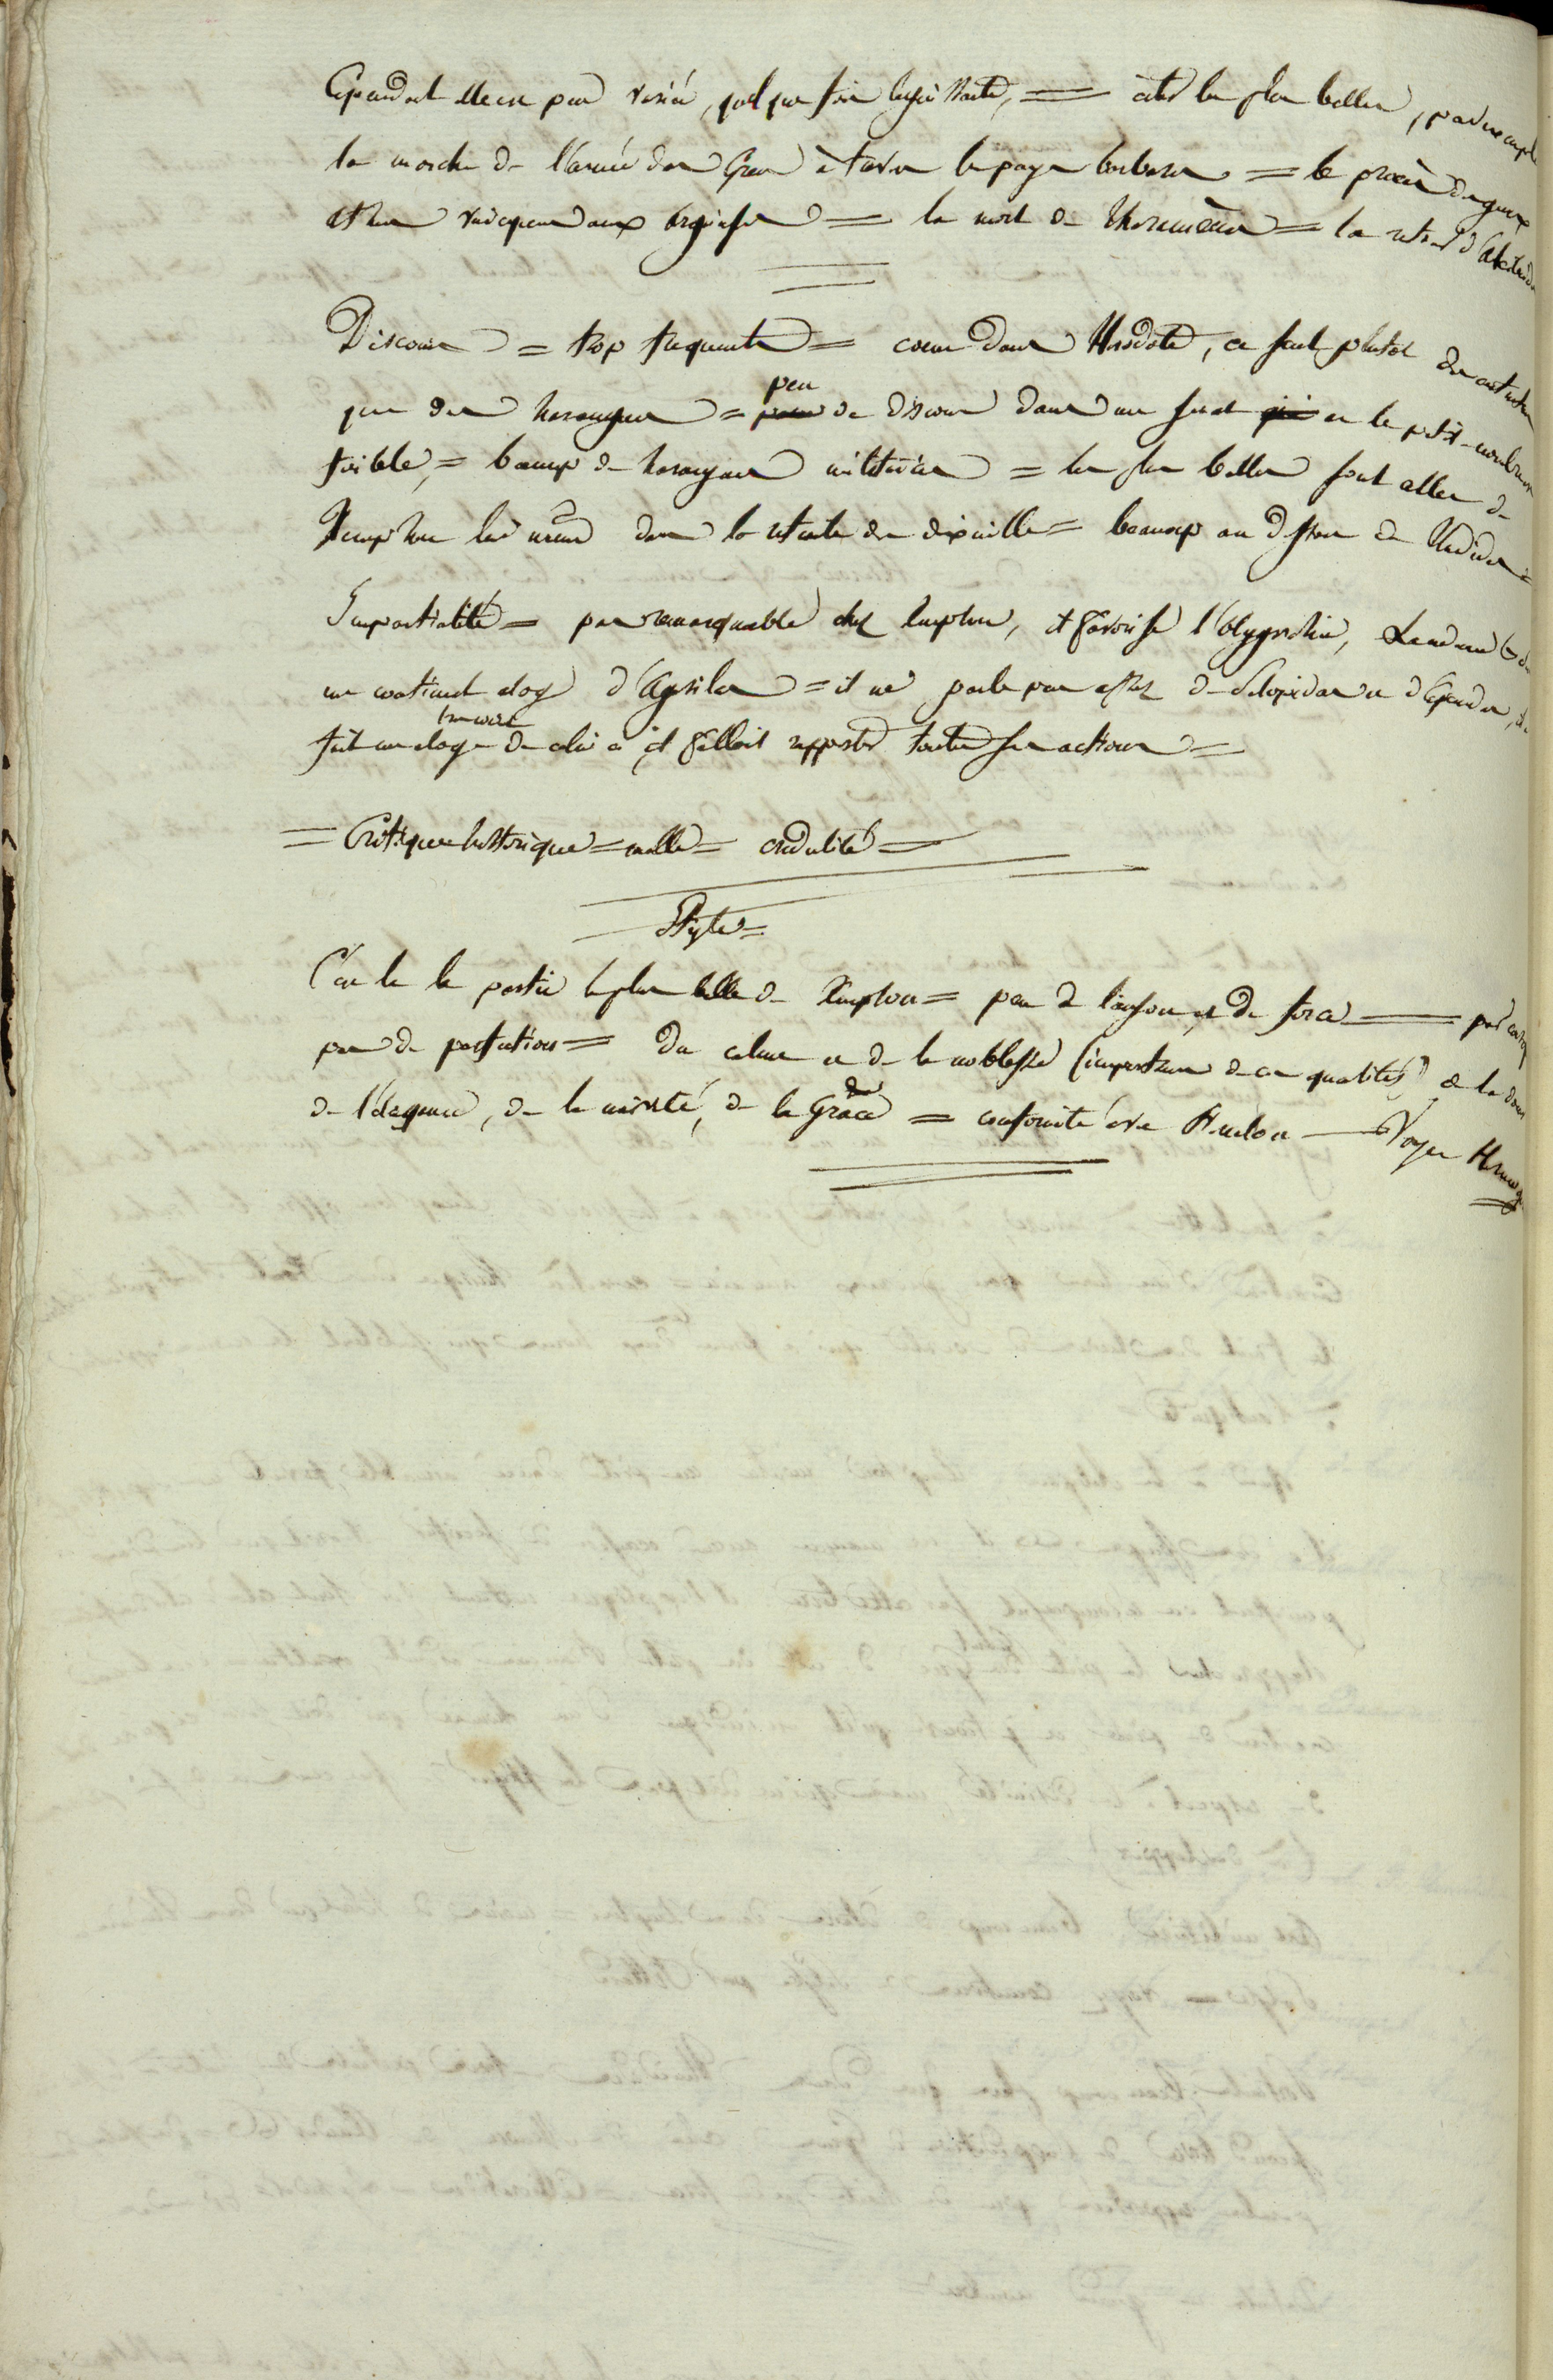 Cependant elle est peu variée, quelque fois languissante, = citer les plus belles, par exemple
la marche de l'armée des Grecs à travers le pays barbare = le procès des généraux
athen vainqueurs aux Arginuses = la mort de Theramène = la retour d'Alcibiade
Discours = trop frequents = comme dans Herodote, ce sont plutot des entretiens
que des harangues = peu de discours dans un senat et le petit nombre est
foible, = beaucoup de harangues militaires = les plus belles sont celles de
Xenophon lui même dans la retraite des dix mille = beaucoup au dessous de Thucidide =
Impartialité = peu remarquable chez Xenophon, il favorise l'olygarchie, Lacedemone
un continuel eloge d'Agesilas = il ne parle pas assez de Pelopidas et d'Epaminondas,
fait un eloge de celui ci, il falloit rapporter toutes ses actions =
= Critique historique = nulle = credulité =
Style =
C'est là la partie la plus belle de Xenophon = peu de liaison, et de force =
peu de perfection = du calme et de la noblesse (importance de ces qualités) de la douceur
de l'élegance, de la naiveté, de la Grace = conformité avec Fenelon — Voyez